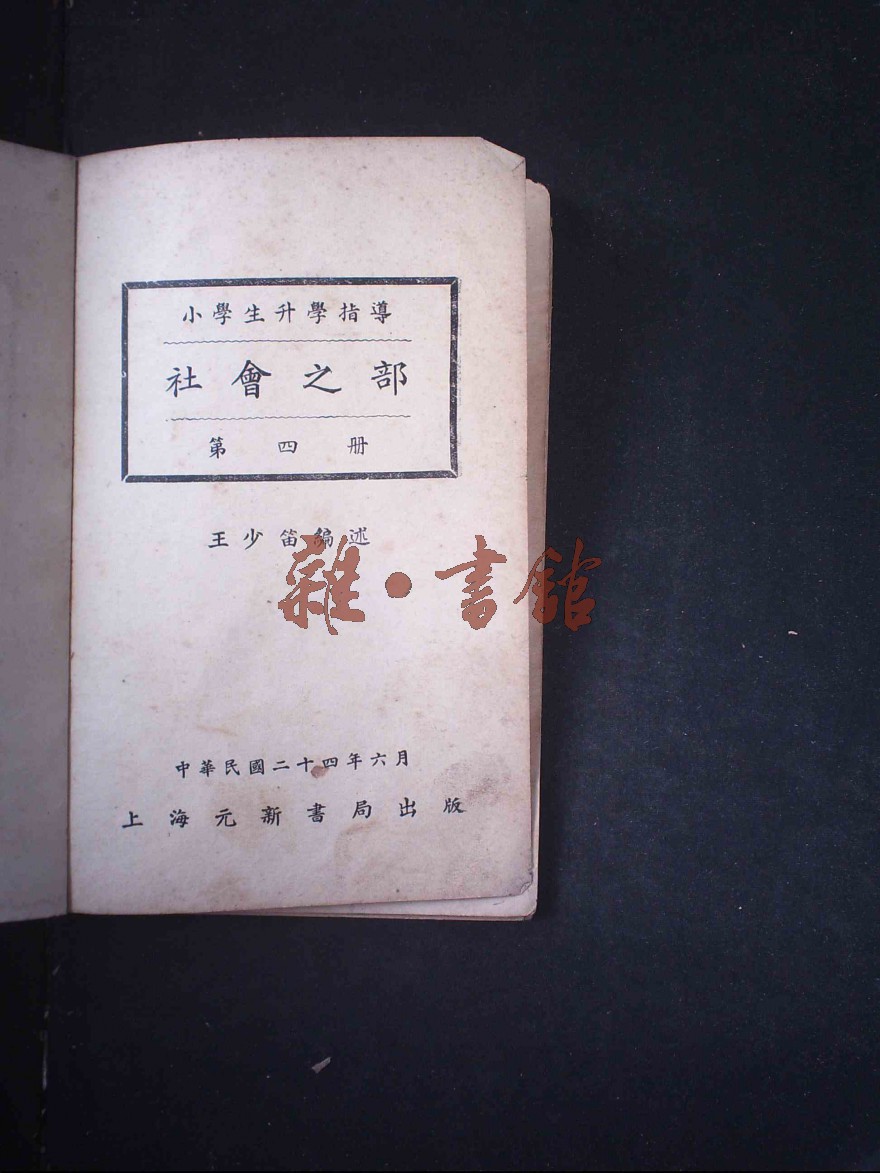 小學生升學指導
社會之部
第四册
王少笛編述
雜·書館
中華民國二十四年六月
上海元新書局出版